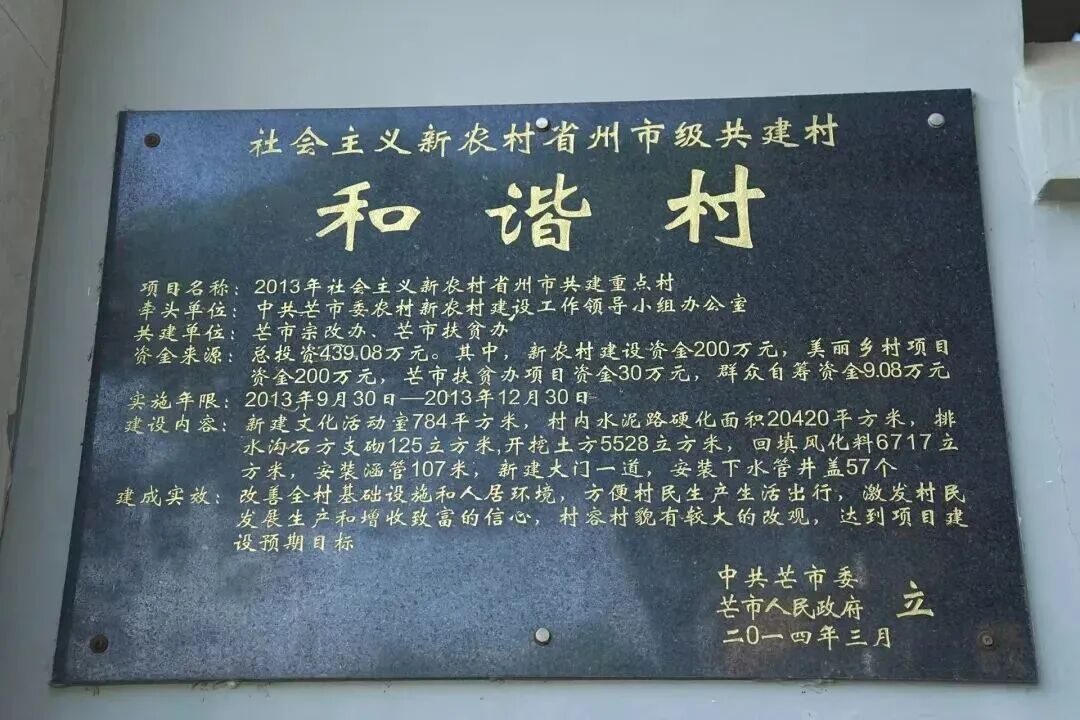 社会主义新农村省州市级共建村
和谐村
项目名称：2013年社会主义新农村省州市共建重点村
牵头单位：中共芒市委农村新农村建设工作领导小组办公室
共建单位：芒市宗改办、芒市扶贫办
资金来源：总投资439.08万元。其中，新农村建设资金200万元，美丽乡村项目
资金200万元，芒市扶贫办项目资金30万元，群众自筹资金9.08万元
实施年限：2013年9月30日—2013年12月30日
建设内容：新建文化活动室784平方米，村内水泥路硬化面积20420平方米，排
水沟石方支砌125立方米,开挖土方5528立方米，回填风化料6717立
方米，安装涵管107米，新建大门一道，安装下水管井盖57个
建成实效：改善全村基础设施和人居环境，方便村民生产生活出行，激发村民
发展生产和增收致富的信心，村容村貌有较大的改观，达到项目建
设预期目标
中共芒市委
芒市人民政府 立
二0一四年三月